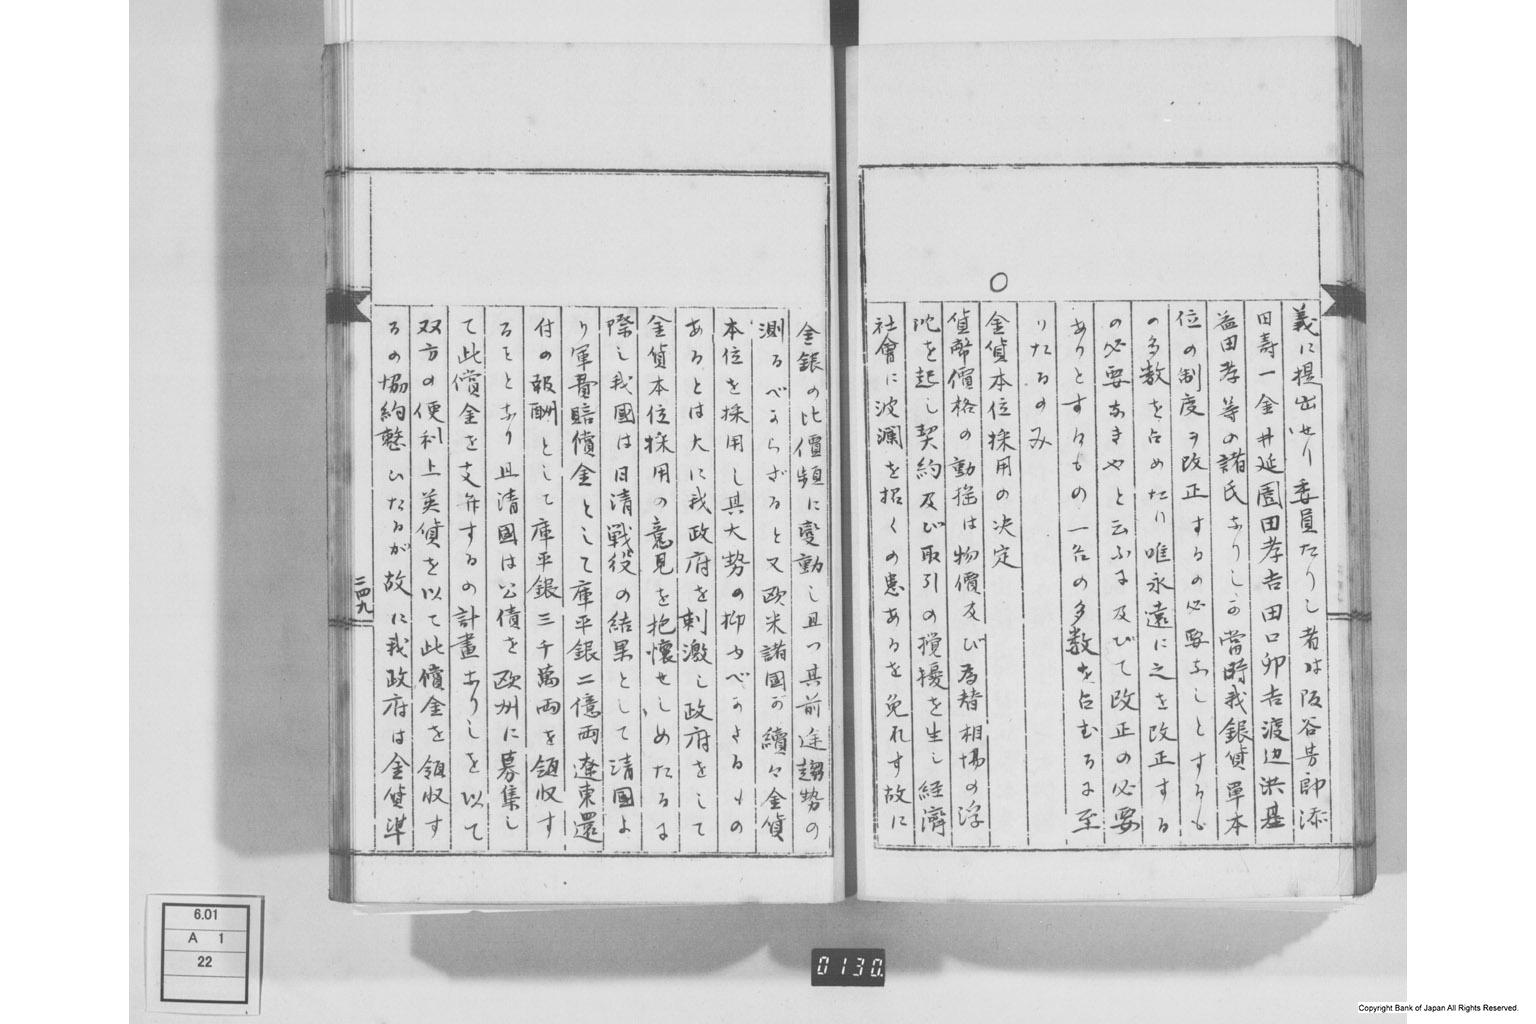 義に提出せり委員たりし者は阪谷芳郎添
田寿一金井延園田孝吉田口卯吉渡辺洪基
益田孝等の諸氏なりしが當時我銀貨單本
位の制度ヲ改正するの必要なしとするも
の多数を占めたり唯永遠に之を改正する
の必要なきやと云ふに及びて改正の必要
ありとするもの一名の多数を占むるに至
りたるのみ
○
金貨本位採用の決定
貨幣價格の動揺は物價及び為替相場の浮
沈を起し契約及び取引の撹擾を生し経濟
社會に波瀾を招くの患あるを免れす故に
金銀の比價頻に変動し且つ其前途趨勢の
測るべからざると又欧米諸國が續々金貨
本位を採用し其大勢の抑ふべからさるもの
あるとは大に我政府を刺激し政府をして
金貨本位採用の意見を抱懐せしめたるに
際し我國は日清戦役の結果として清國よ
り軍費賠償金として庫平銀二億両遼東還
付の報酬として庫平銀三千萬両を領収す
ることなり且清國は公債を欧州に募集し
て此償金を支弁するの計畫なりしを以て
双方の便利上英貨を以て此償金を領収す
るの協約整ひたるが故に我政府は金貨準
二四九
6.01
A 1
22
0130
Copyright Bank of Japan All Rights Reserved.